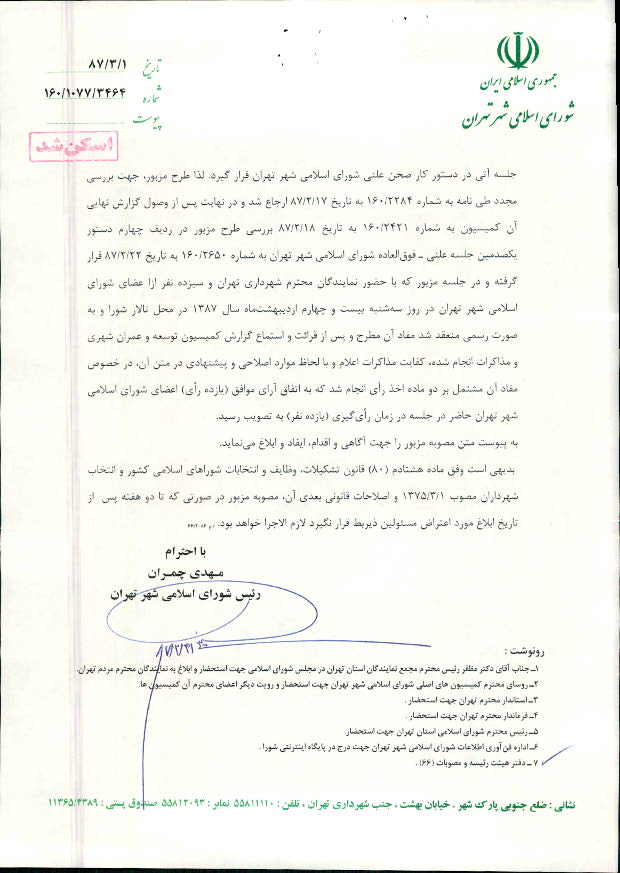 جمهوری اسلامی ایران
شورای اسلامی شهر تهران
تاریخ ۸۷/۳/۱
شماره ۱۶۰/۱۰۷۷/۳۴۶۴
پیوست
اسکن شد
جلسه آتی در دستور کار صحن علنی شورای اسلامی شهر تهران قرار گیرد. لذا طرح مزبور، جهت بررسی
مجدد طی نامه به شماره ۱۶۰/۲۲۸۴ به تاریخ ۸۷/۲/۱۷ ارجاع شد و در نهایت پس از وصول گزارش نهایی
آن کمیسیون به شماره ۱۶۰/۲۴۲۱ به تاریخ ۸۷/۲/۱۸ بررسی طرح مزبور در ردیف چهارم دستور
یکصدمین جلسه علنی ـ فوق‌العاده شورای اسلامی شهر تهران به شماره ۱۶۰/۲۶۵۰ به تاریخ ۸۷/۲/۲۲ قرار
گرفته و در جلسه مزبور که با حضور نمایندگان محترم شهرداری تهران و سیزده نفر ازا عضای شورای
اسلامی شهر تهران در روز سه‌شنبه بیست و چهارم اردیبهشت‌ماه سال ۱۳۸۷ در محل تالار شورا و به
صورت رسمی منعقد شد مفاد آن مطرح و پس از قرائت و استماع گزارش کمیسیون توسعه و عمران شهری
و مذاکرات انجام شده، کفایت مذاکرات اعلام و با لحاظ موارد اصلاحی و پیشنهادی در متن آن، در خصوص
مفاد آن مشتمل بر دو ماده اخذ رأی انجام شد که به اتفاق آرای موافق (یازده رأی) اعضای شورای اسلامی
شهر تهران حاضر در جلسه در زمان رأی‌گیری (یازده نفر) به تصویب رسید.
به پیوست متن مصوبه مزبور را جهت آگاهی و اقدام، ایفاد و ابلاغ می‌نماید.
بدیهی است وفق ماده هشتادم (۸۰) قانون تشکیلات، وظایف و انتخابات شوراهای اسلامی کشور و انتخاب
شهرداران مصوب ۱۳۷۵/۳/۱ و اصلاحات قانونی بعدی آن، مصوبه مزبور در صورتی که تا دو هفته پس از
تاریخ ابلاغ مورد اعتراض مسئولین ذیربط قرار نگیرد لازم الاجرا خواهد بود.
با احترام
مهدی چمران
رئیس شورای اسلامی شهر تهران
رونوشت :
۱ـ جناب آقای دکتر مظفر رئیس محترم مجمع نمایندگان استان تهران در مجلس شورای اسلامی جهت استحضار و ابلاغ به نمایندگان محترم مردم تهران.
۲ـ روسای محترم کمیسیون های اصلی شورای اسلامی شهر تهران جهت استحضار و رویت دیگر اعضای محترم آن کمیسیون ها.
۳ـ استاندار محترم تهران جهت استحضار .
۴ـ فرماندار محترم تهران جهت استحضار .
۵ـ رئیس محترم شورای اسلامی استان تهران جهت استحضار.
۶ـ اداره فن‌آوری اطلاعات شورای اسلامی شهر تهران جهت درج در پایگاه اینترنتی شورا.
۷ ـ دفتر هیئت رئیسه و مصوبات (۶۶) .
نشانی : ضلع جنوبی پارک شهر ، خیابان بهشت ، جنب شهرداری تهران ، تلفن : ۵۵۸۱۱۱۱۰ نمابر : ۵۵۸۱۲۰۹۳ صندوق پستی : ۱۱۳۶۵/۴۳۸۹